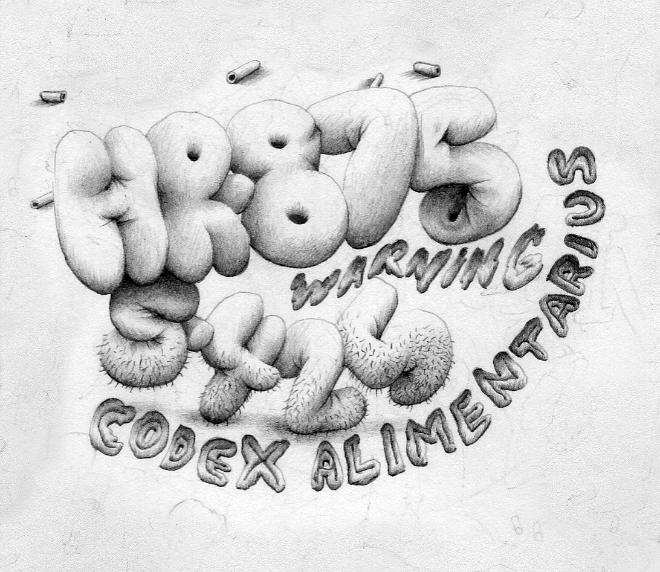 HR875
WARNING
S425
CODEX ALIMENTARIUS